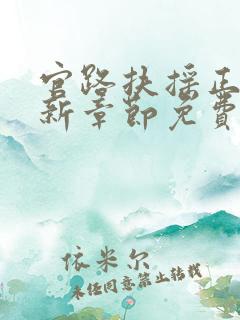 官路扶摇正
新章节免费
依米尔
未经同意禁止转载